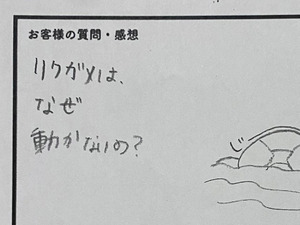 お客様の質問・感想
リクガメは、
なぜ
動かないの?
じ